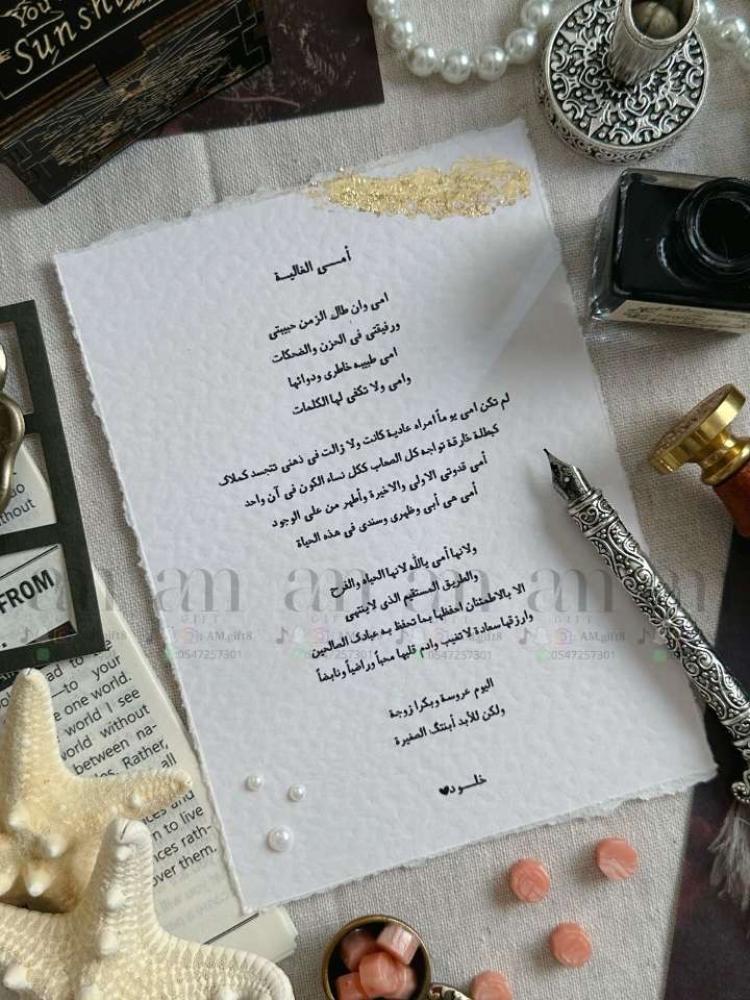 YOU
Sunshi
أمـــي الغالية
امي وان طال الزمن حبيبتي
ورفيقتي في الحزن والضحكات
امي طبيبه خاطري ودوائها
وامي ولا تكفي لها الكلمات
لم تكن امي يوماً امراه عادية كانت ولا زالت في ذهني تتجسد كملاك
كبطلة خارقة تواجه كل الصعاب ككل نساء الكون في آن واحد
أمي قدوتي الاولى والاخيرة وأطهر من على الوجود
أمي هي أبي وظهري وسندي في هذه الحياة
ولانها أمي ياالله لانها الحياه والفرح
والطريق المستقيم الذي لاينتهي
الا بالاطمئنان احفظها بما تحفظ به عبادك الصالحين
وارزقها سعادة لا تغيب وادم قلبها محباً وراضياً ونابضاً
اليوم عروسة وبكرا زوجة
ولكن للأبد أبنتگ الصغيرة
خلـــود♥
do
thout
FROM
ad to the
—to your
e one world.
world I see
world without
between na-
es. Rather,
all
aces and
n to live
nces rath-
over them.
am
GIFT
AM.gift8
0547257301